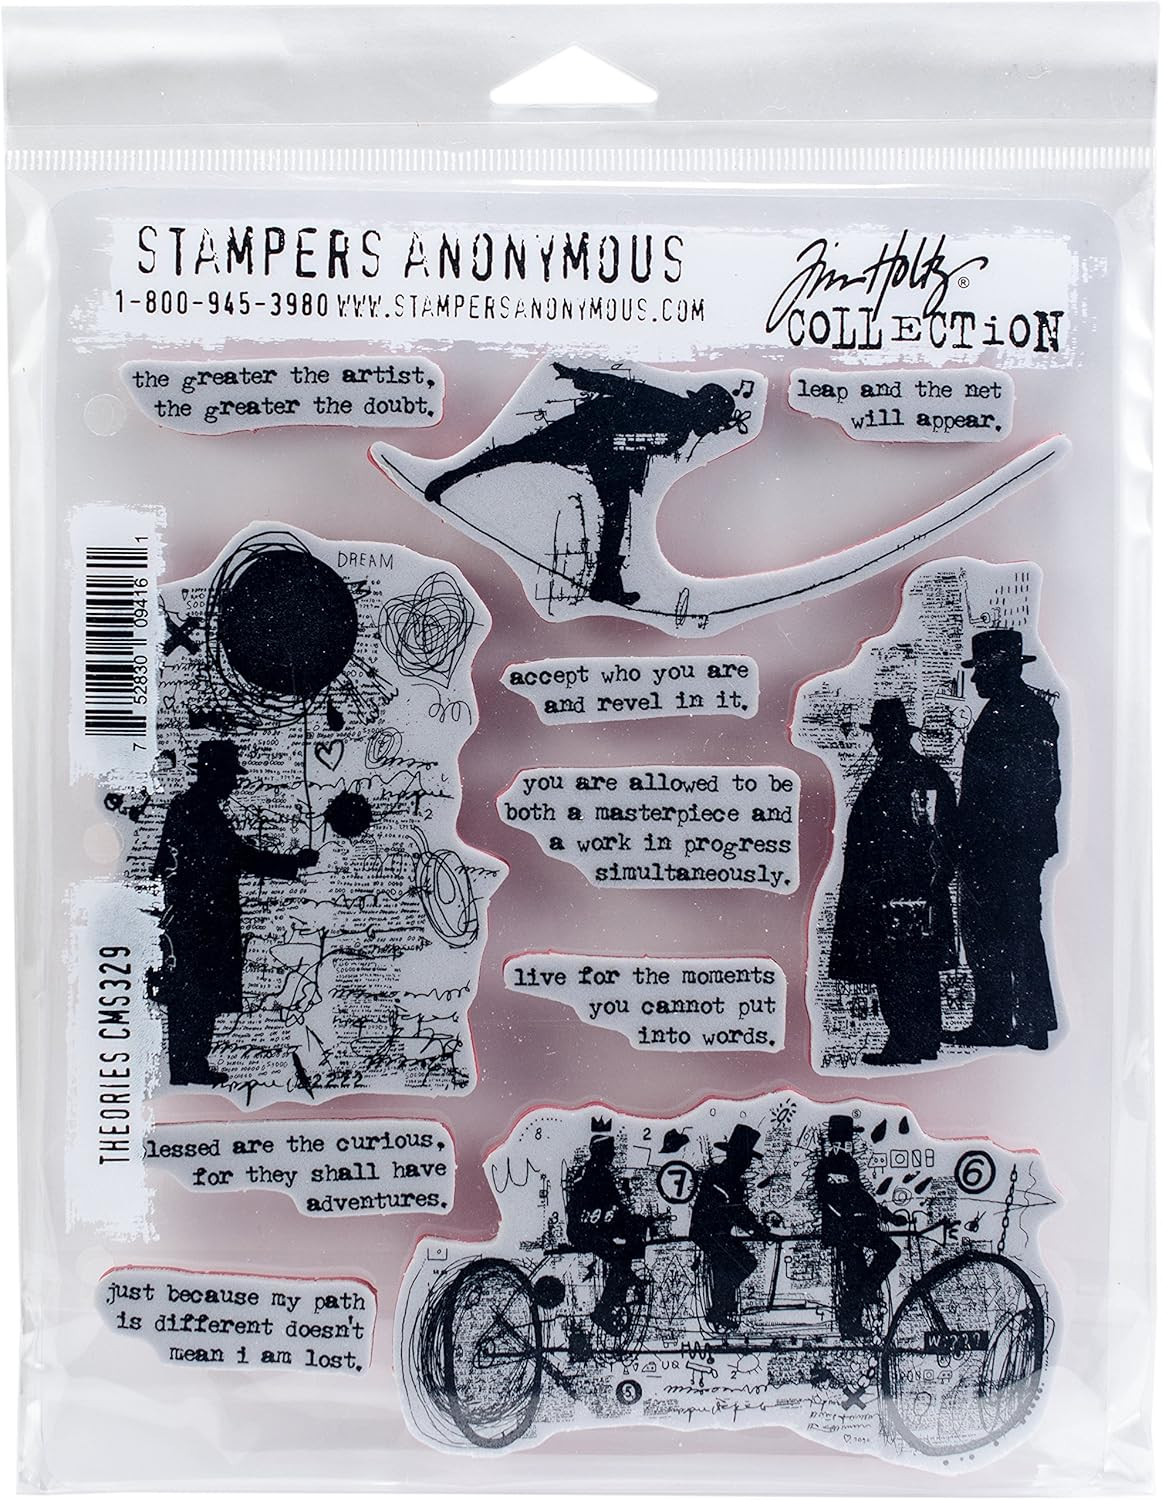 STAMPERS ANONYMOUS
1-800-945-3980 WWW.STAMPERSANONYMOUS.COM
Tim Holtz®
COLLECTiON
the greater the artist,
the greater the doubt.
leap and the net
will appear.
DREAM
7 52830 09416 1
accept who you are
and revel in it.
you are allowed to be
both a masterpiece and
a work in progress
simultaneously.
live for the moments
you cannot put
into words.
THEORIES CMS329
lessed are the curious,
for they shall have
adventures.
just because my path
is different doesn't
mean i am lost.
8
2
7
6
5